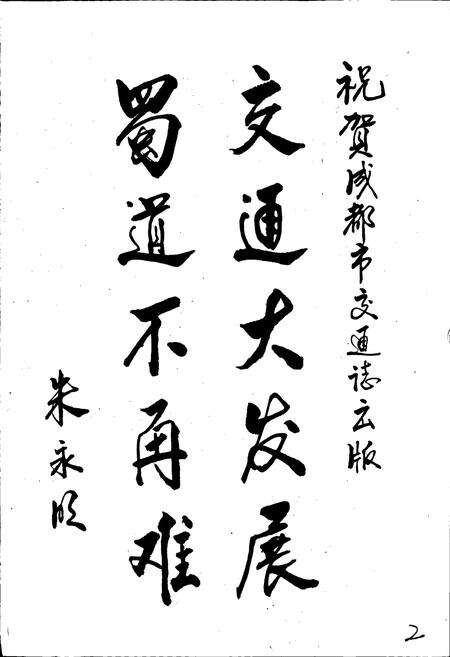 祝贺成都市交通誌出版
交通大发展
蜀道不再难
朱永明
2